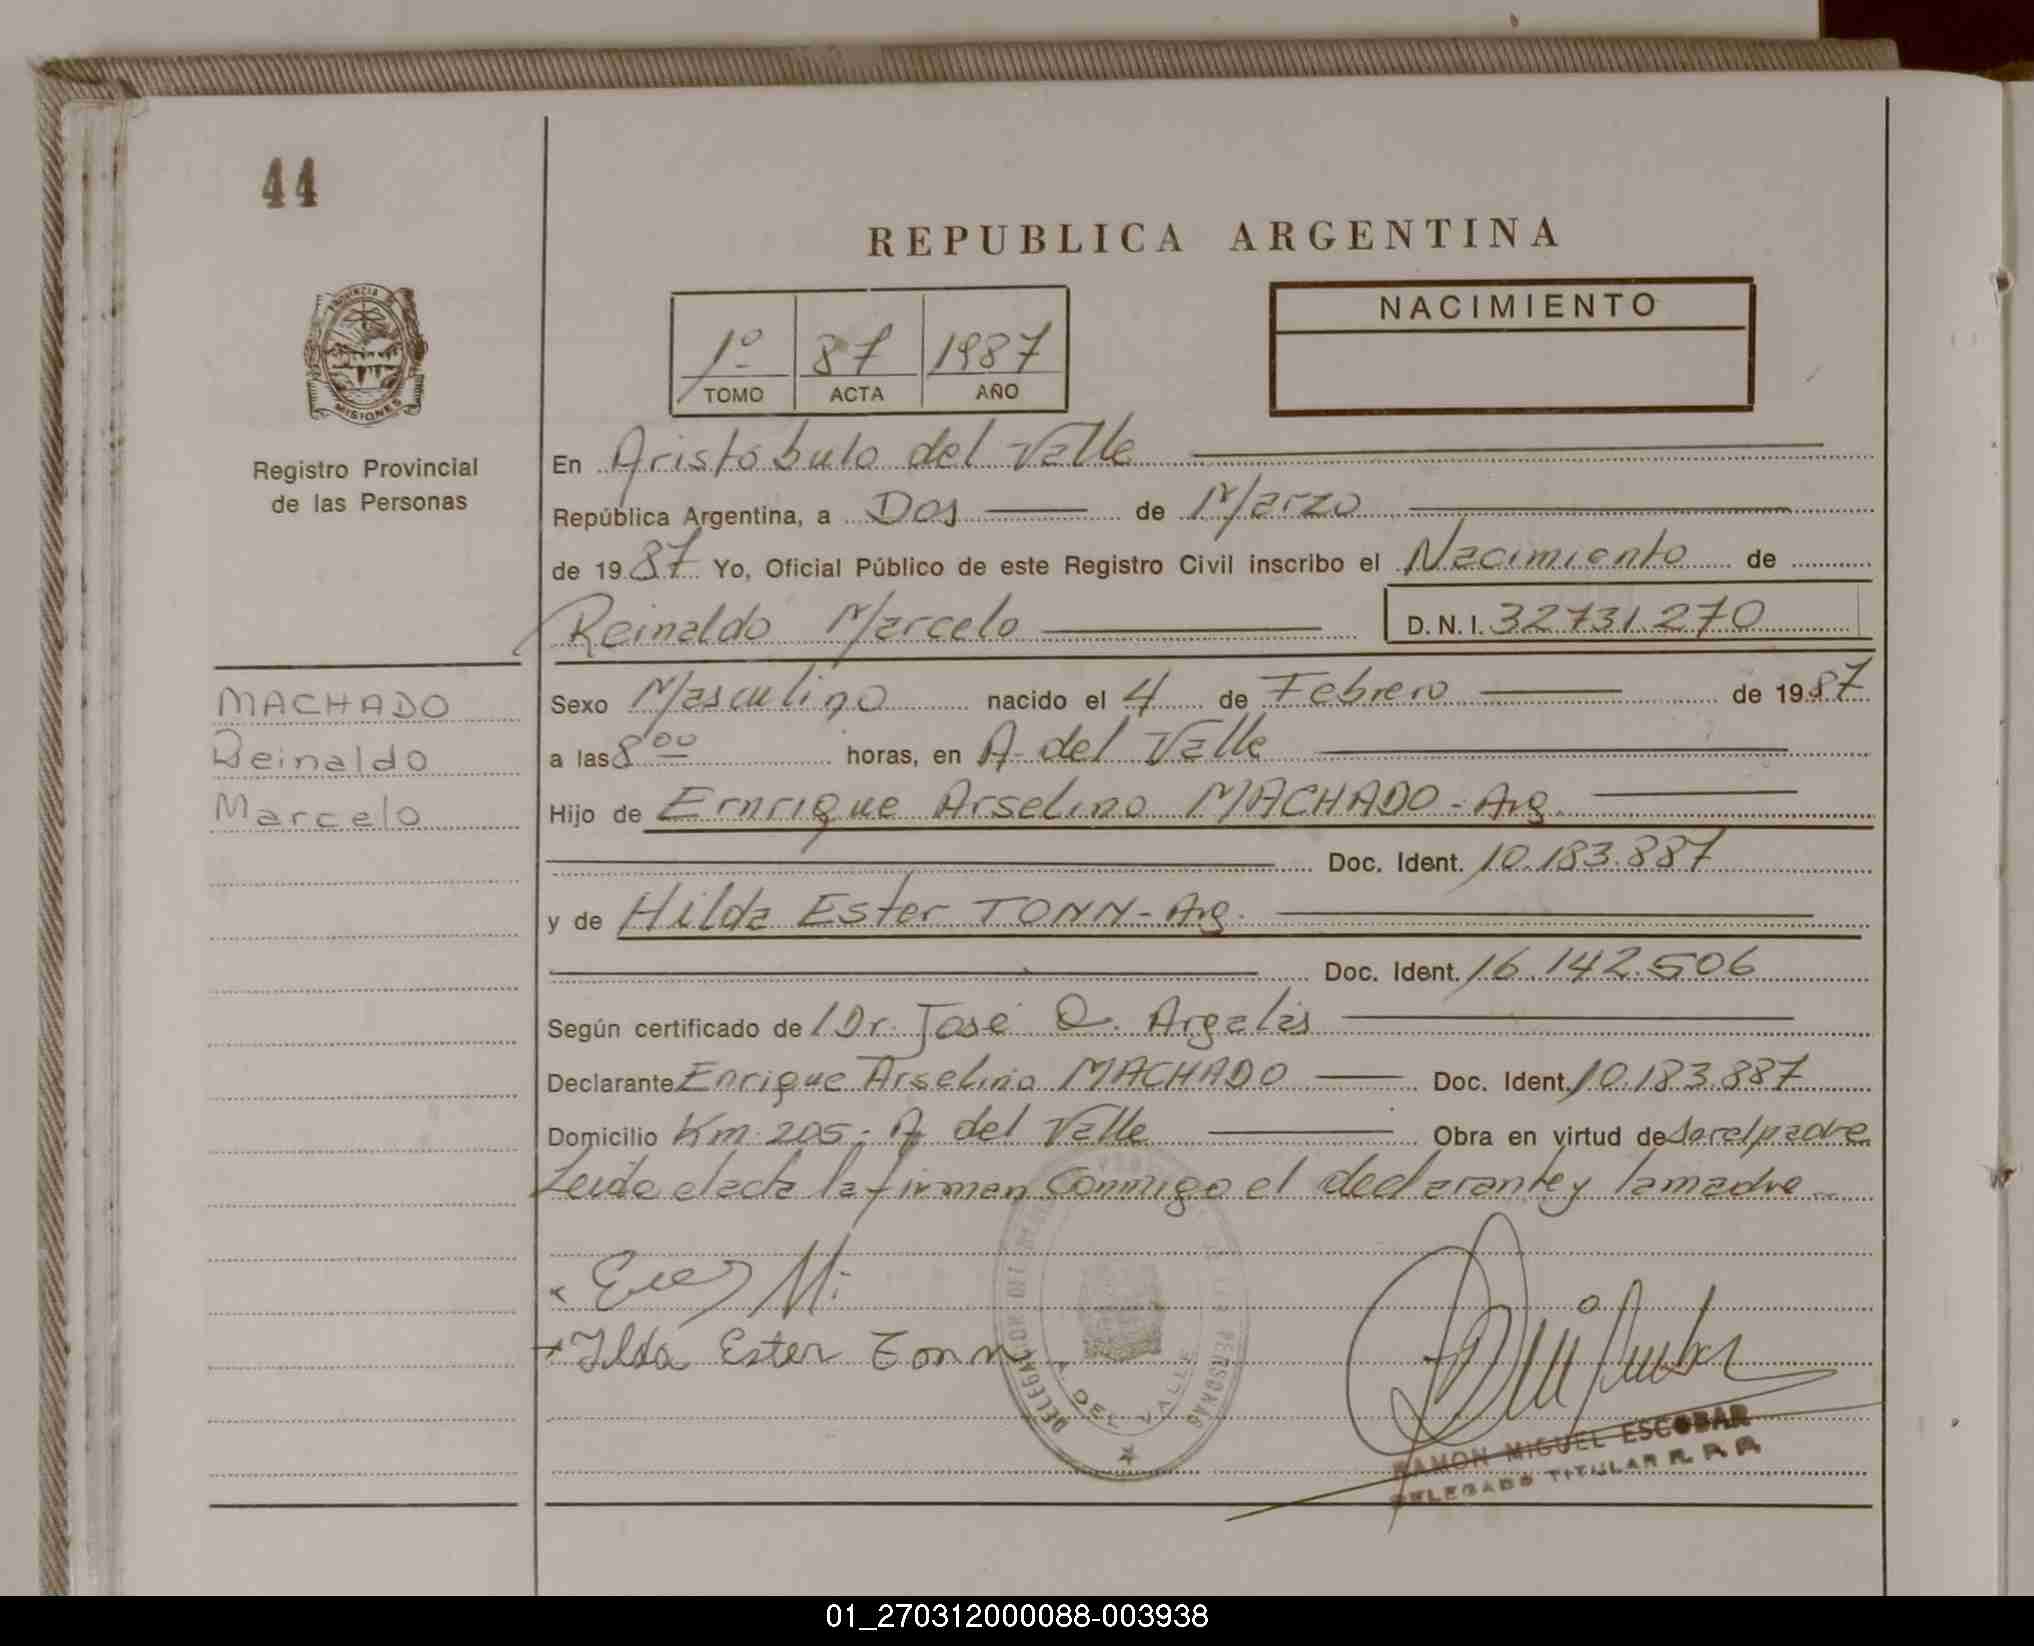 44
REPUBLICA ARGENTINA
PROVINCIA DE
MISIONES
Registro Provincial
de las Personas
1º 87 1987
TOMO ACTA AÑO
NACIMIENTO
En Aristóbulo del Valle
República Argentina, a Dos de Marzo
de 1987 Yo, Oficial Público de este Registro Civil inscribo el Nacimiento de
Reinaldo Marcelo D.N.I. 32731.270
MACHADO
Reinaldo
Marcelo
Sexo Masculino nacido el 4 de Febrero de 1987
a las 8 00 horas, en A. del Valle
Hijo de Ernrique Arselino MACHADO - Arg.
Doc. Ident. 10.183.887
y de Hilda Ester TONN - Arg.
Doc. Ident. 16.142.506
Según certificado de Dr. José O. Argalas
Declarante Enrique Arselino MACHADO Doc. Ident. 10.183.887
Domicilio Km. 205 - A. del Valle Obra en virtud de ser el padre
Leída el acta la firman conmigo el declarante y la madre
Ilda Ester Tonn
DEL VALLE
RAMON MIGUEL ESCOBAR
DELEGADO TITULAR R. P. P.
01_270312000088-003938